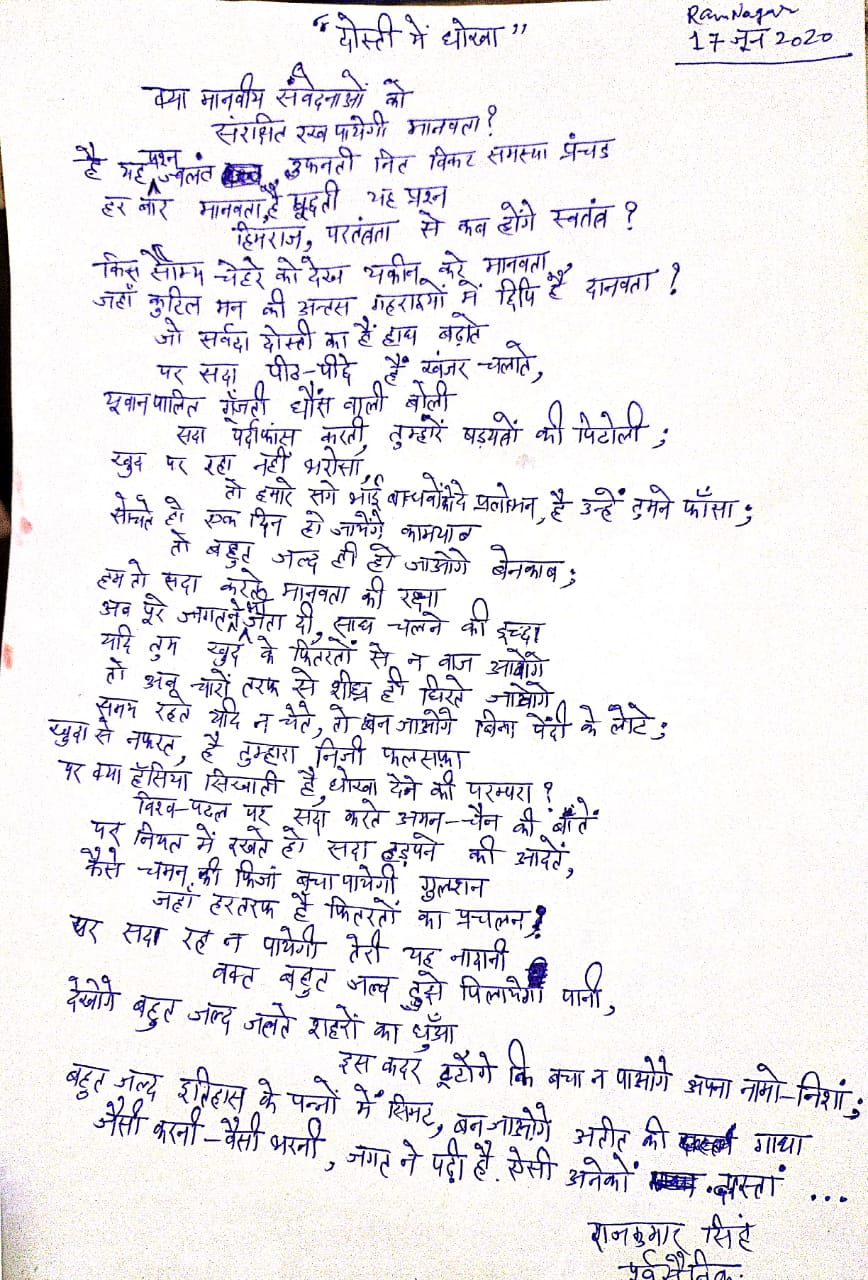 RamNagar
17 जून 2020
"दोस्ती में धोखा"
क्या मानवीय संवेदनाओं को
संरक्षित रख पायेगी मानवता?
है यह प्रश्न ज्वलंत उफनती नित विकट समस्या प्रंचड
हर बार मानवता है पूछती यह प्रश्न
हिमराज, परतंत्रता से कब होंगे स्वतंत्र ?
किस सौम्य चेहरे को देख यकीन करे मानवता
जहाँ कुटिल मन की अन्तस गहराइयों में छिपि है दानवता ?
जो सर्वदा दोस्ती का हैं हाथ बढ़ाते
पर सदा पीठ-पीछे हैं खंजर चलाते,
यूवान पालित गूँजती धौंस वाली बोली
सदा पर्दाफास करती, तुम्हारे षड़यंत्रों की पिटोली ;
खुद पर रहा नहीं भरोसा,
तो हमारे सगे भाई बान्धवों को दे प्रलोभन, है उन्हें तुमने फाँसा ;
सोचते हो एक दिन हो जायेंगे कामयाब
तो बहुत जल्द ही हो जाओगे बेनकाब ;
हम तो सदा करते मानवता की रक्षा
अब पूरे जगत ने भी जता दी, साथ चलने की इच्छा
यदि तुम खुद के फितरतों से न बाज आवोगे
तो अब चारों तरफ से शीघ्र ही घिरते जावोगे
समय रहते यदि न चेते, तो बन जाओगे बिना पेंदी के लोटे ;
खुदा से नफरत, है तुम्हारा निजी फलसफा
पर क्या हँसिया सिखाती है धोखा देने की परम्परा ?
विश्व-पटल पर सदा करते अमन-चैन की बातें
पर नियत में रखते हो सदा हड़पने की आदतें,
कैसे चमन की फिजां बचा पायेगी गुलशन
जहाँ हरतरफ है फितरतों का प्रचलन ?
पर सदा रह न पायेगी तेरी यह नादानी
वक्त बहुत जल्द तुझे पिलायेगा पानी,
देखोगे बहुत जल्द जलते शहरों का धुँआ
इस कदर टूटोगे कि बचा न पाओगे अपना नामो-निशां ;
बहुत जल्द इतिहास के पन्नों में सिमट, बन जाओगे अतीत की गाथा
जैसी करनी-वैसी भरनी, जगत ने पढ़ी है. ऐसी अनेकों दास्तां ...
राजकुमार सिंह
पूर्व सैनिक